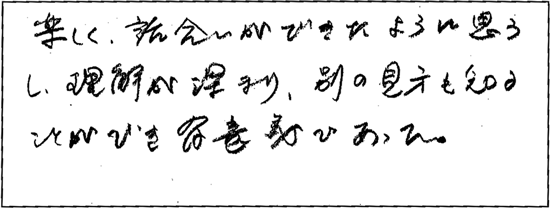 楽しく、話合いができたように思う
し、理解が深まり、別の見方も知る
ことができ有意義であった。